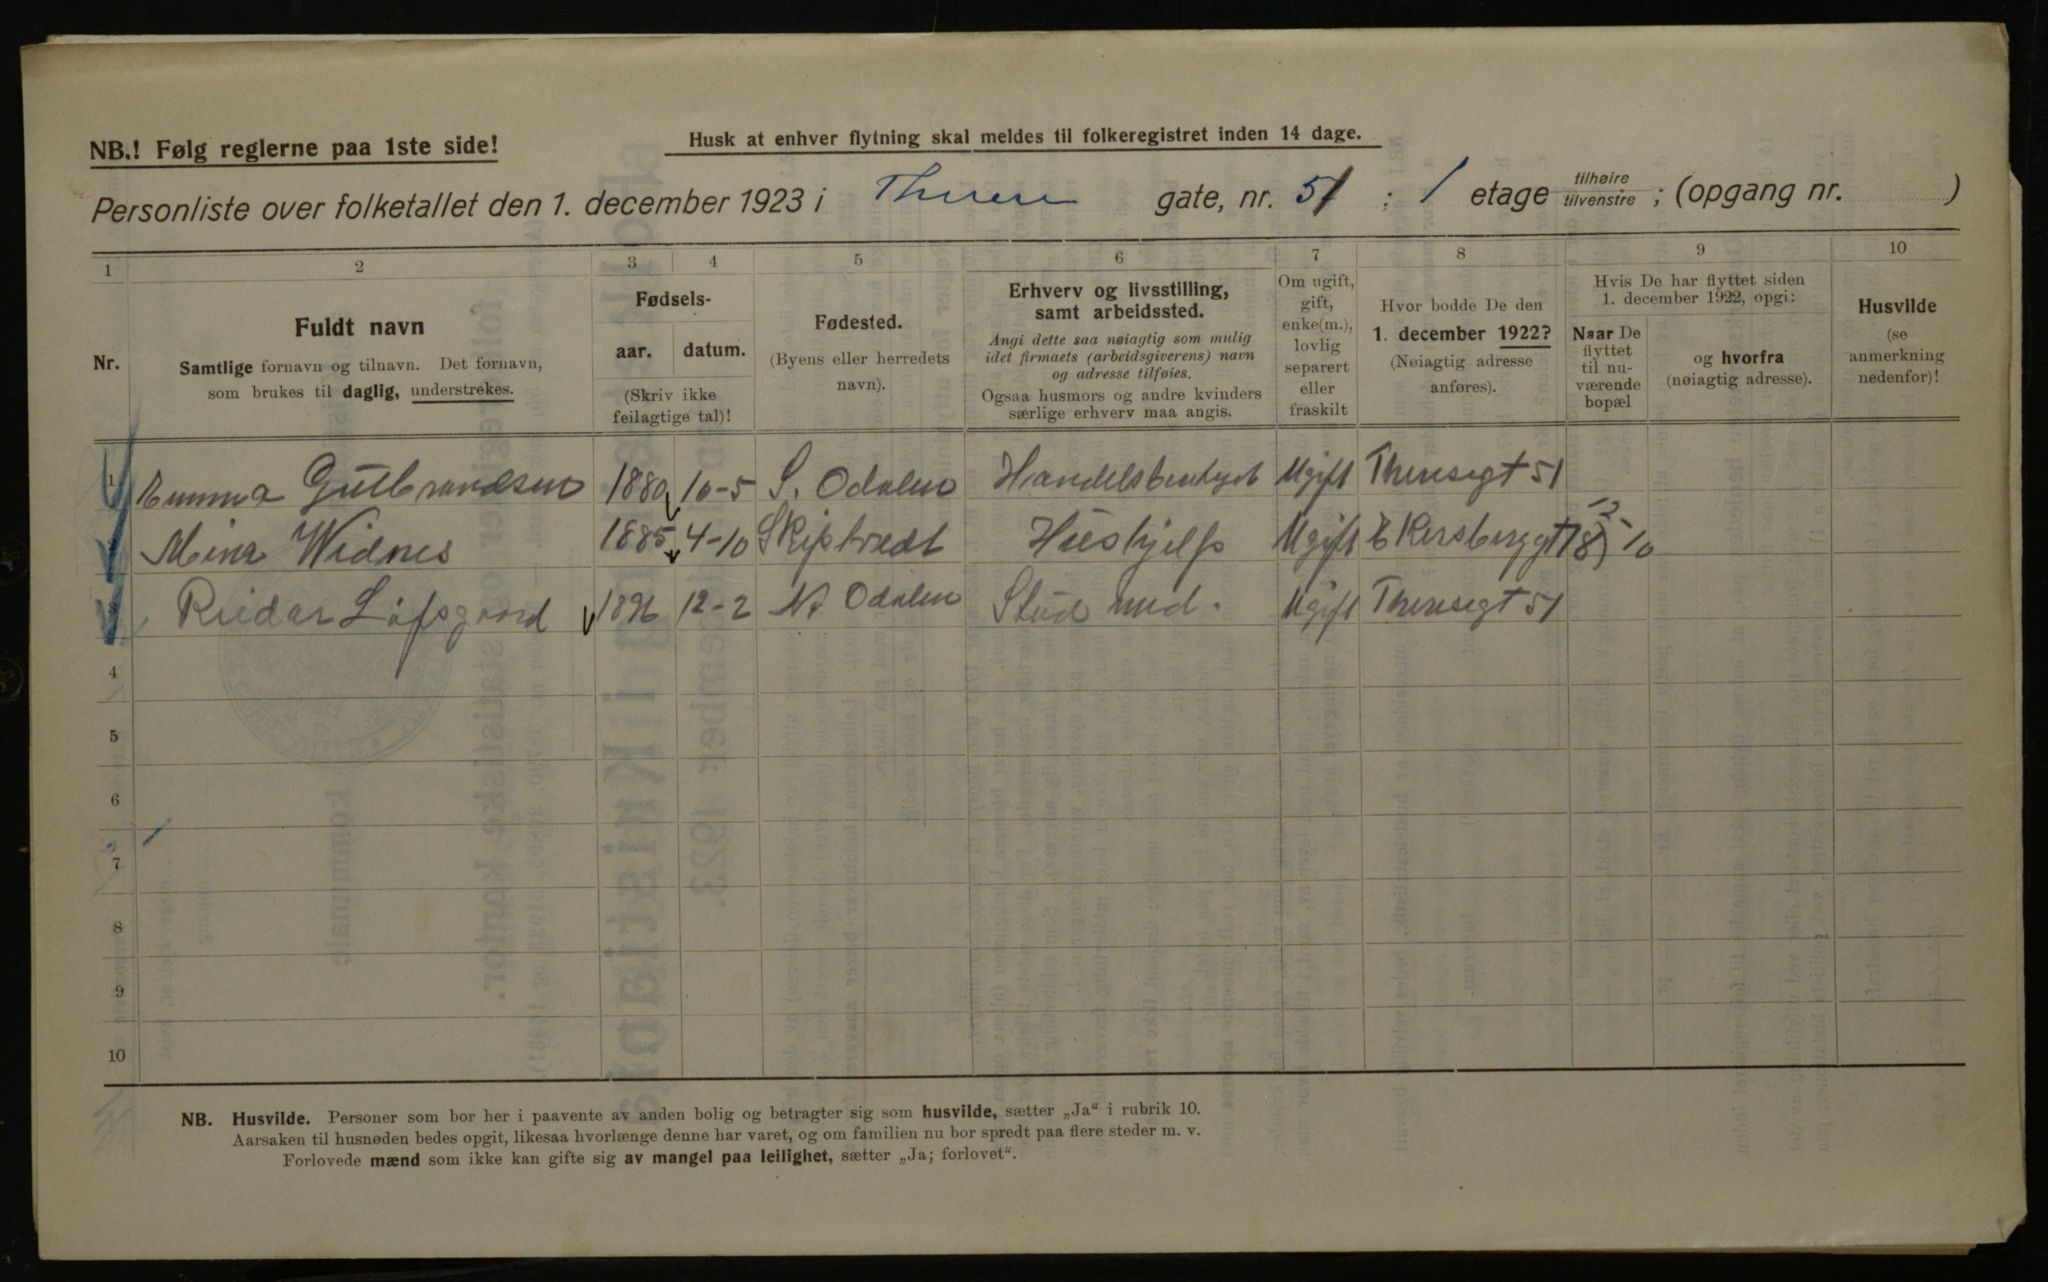 NB.! Følg reglerne paa 1ste side!
Husk at enhver flytning skal meldes til folkeregistret inden 14 dage.
Personliste over folketallet den 1. december 1923 i Therese gate, nr. 51 : 1 etage tilhøire tilvenstre ; (opgang nr. )
1 2 3 4 5 6 7 8 9 10
Nr.
Fuldt navn
Samtlige fornavn og tilnavn. Det fornavn,
som brukes til daglig, understrekes.
Fødsels-
aar. datum.
(Skriv ikke
feilagtige tal)!
Fødested.
(Byens eller herredets
navn).
Erhverv og livsstilling,
samt arbeidssted.
Angi dette saa nøiagtig som mulig
idet firmaets (arbeidsgiverens) navn
og adresse tilføies.
Ogsaa husmors og andre kvinders
særlige erhverv maa angis.
Om ugift,
gift,
enke(m.),
lovlig
separert
eller
fraskilt
Hvor bodde De den
1. december 1922?
(Nøiagtig adresse
anføres).
Hvis De har flyttet siden
1. december 1922, opgi:
Naar De
flyttet
til nu-
værende
bopæl
og hvorfra
(nøiagtig adresse).
Husvilde
(se
anmerkning
nedenfor)!
1 Emma Gulbrandsen 1880 10-5 S. Odalen Ugift Theresegt 51
2 Mina Widnes 1885 4-10 Skiptvedt Hushjelp Ugift
3 Reidar Løfsgaard 1896 12-2 N. Odalen Stud med. Ugift Theresegt 51
4
5
6
7
8
9
10
NB. Husvilde. Personer som bor her i paavente av anden bolig og betragter sig som husvilde, sætter „Ja“ i rubrik 10.
Aarsaken til husnøden bedes opgit, likesaa hvorlænge denne har varet, og om familien nu bor spredt paa flere steder m. v.
Forlovede mænd som ikke kan gifte sig av mangel paa leilighet, sætter „Ja; forlovet“.